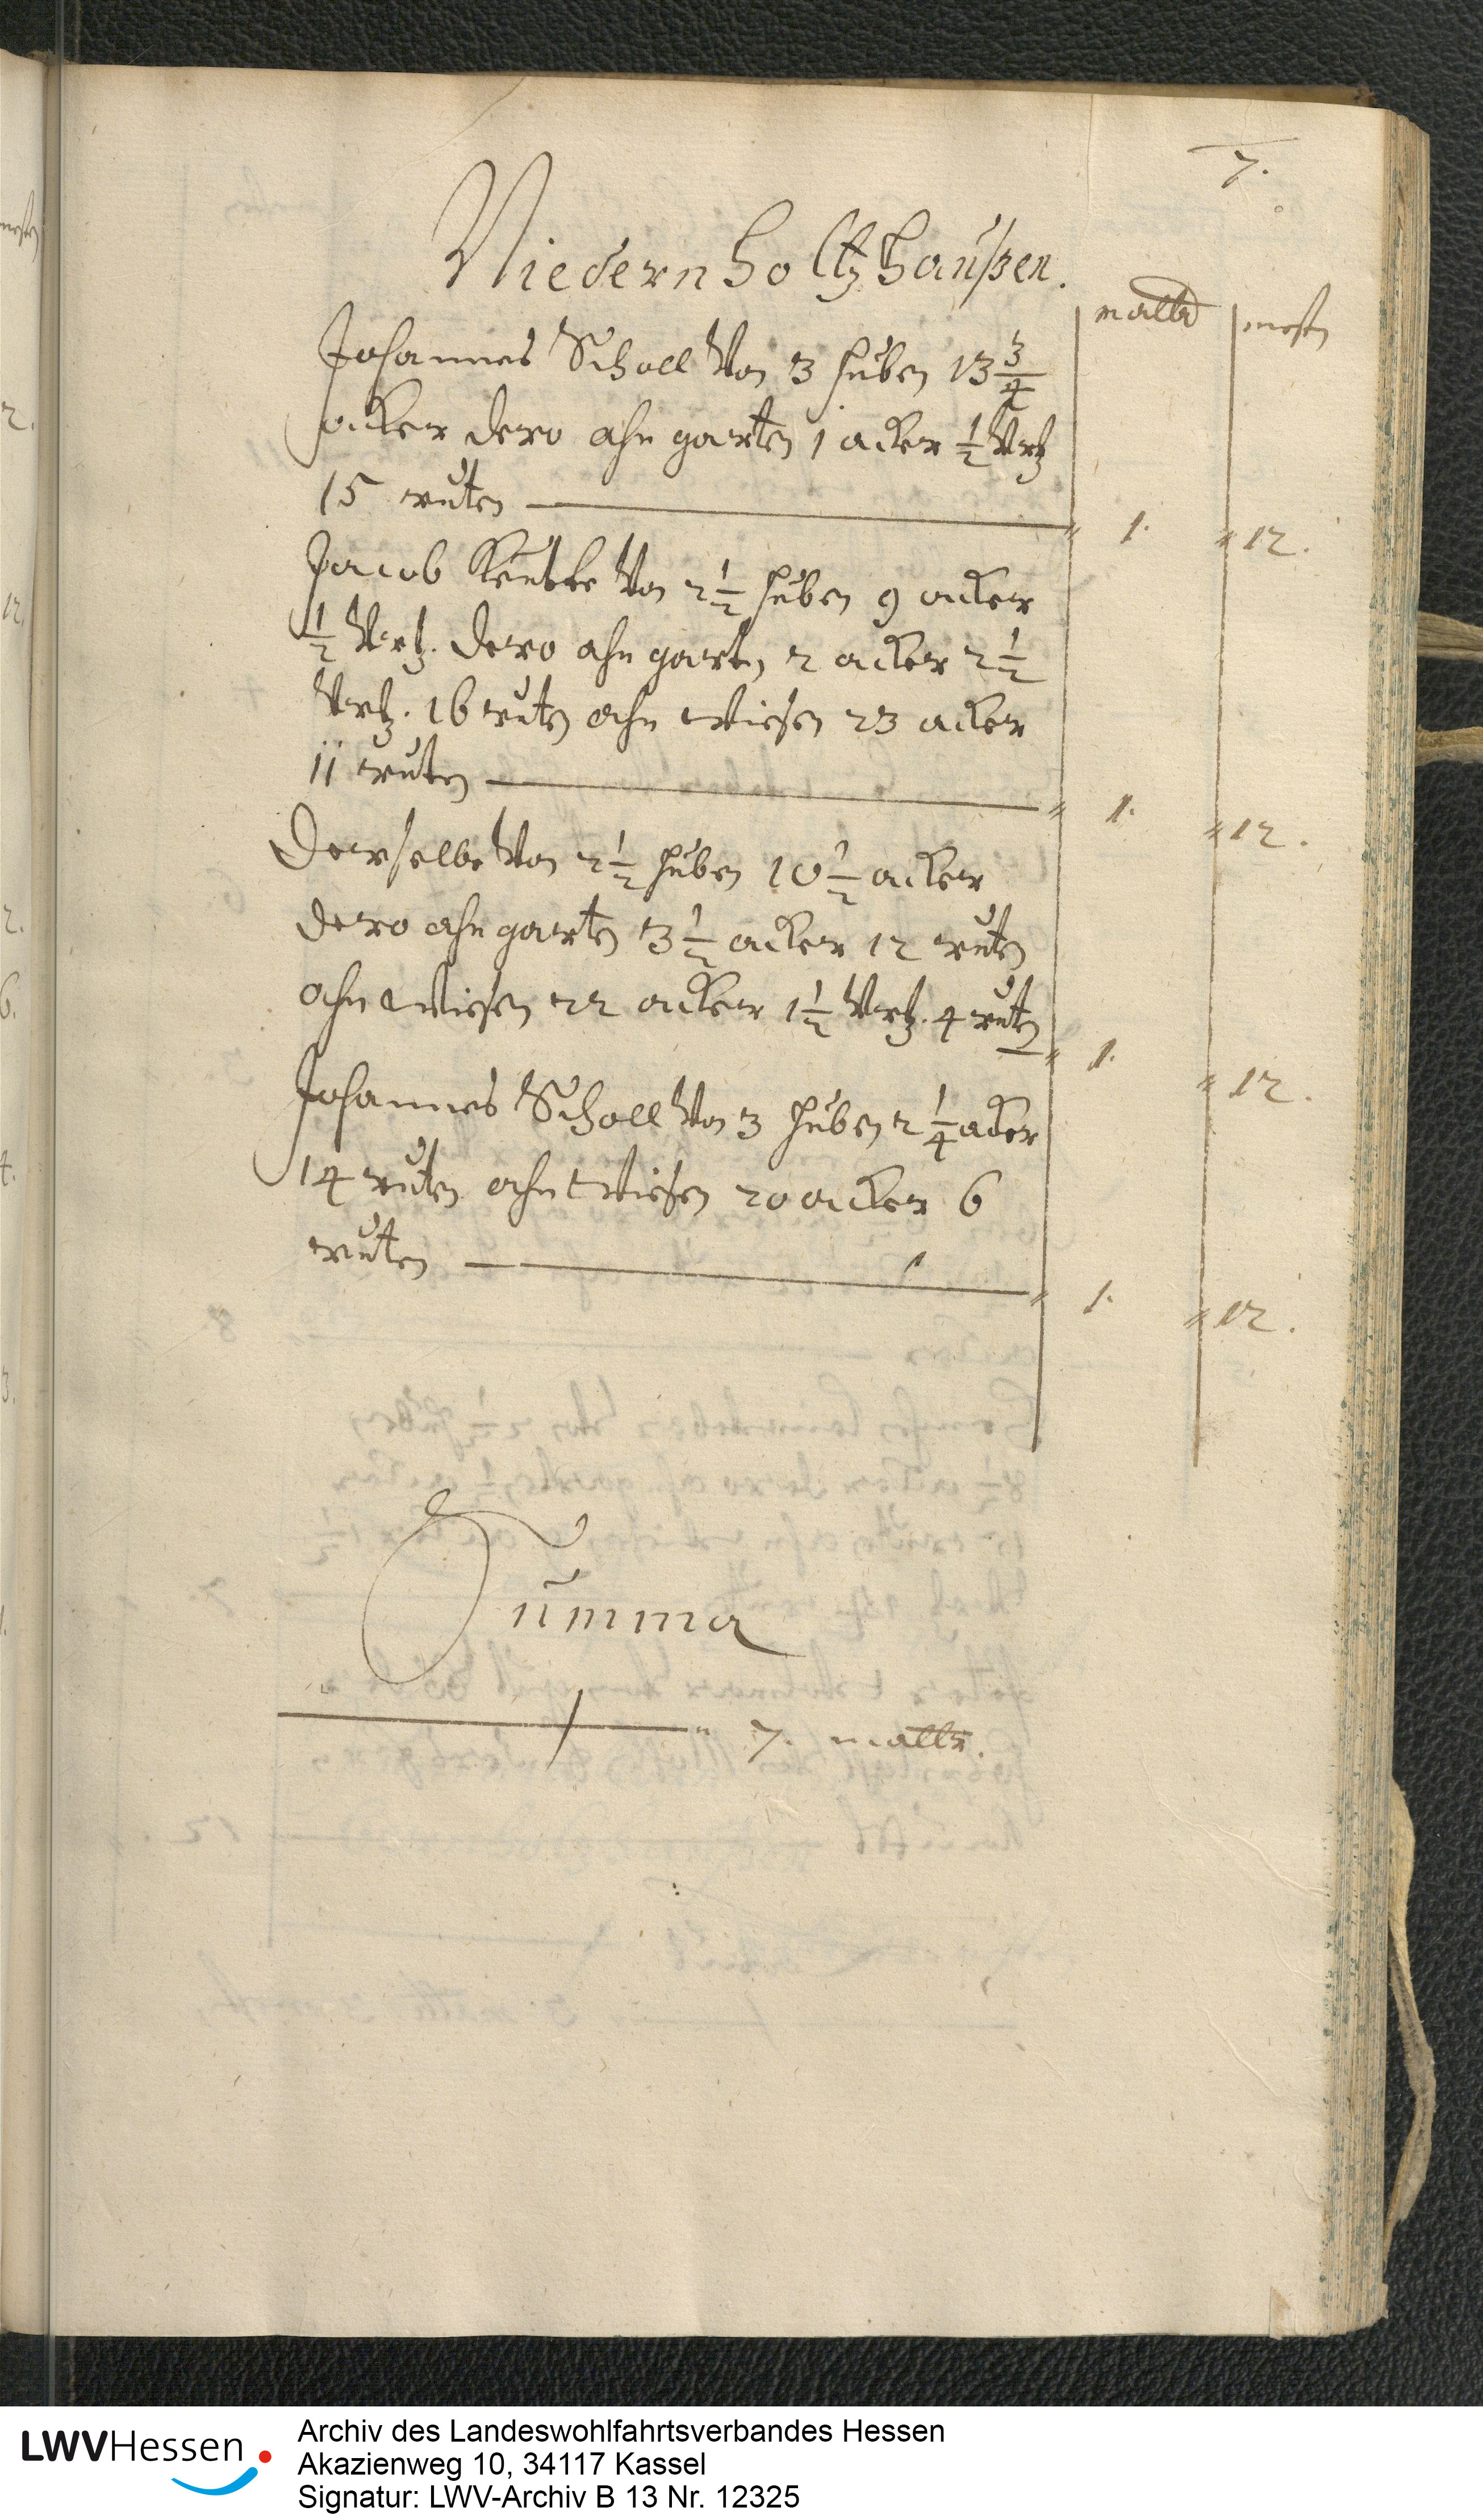 7.
Niedernholtzhaußen.
maltr mesten
Johannes Scholl Von 3 huben 13 3/4
acker dero ahn garten 1 acker 1/2 Vrtz
15 ruten — " 1. " 12.
Jacob Von 2 1/2 huben 9 acker
1/2 Vrtz. dero ahn garten 2 acker 2 1/2
Vrtz. 16 ruten ahn wiesen 23 acker
11 ruten — " 1. " 12.
Derselbe Von 2 1/2 huben 10 1/2 acker
dero ahn garten 3 1/2 acker 12 ruten
ahn wiesen 22 acker 1 1/2 Vrtz. 4 ruten " 1. " 12.
Johannes Scholl Von 3 huben 2 1/4 acker
14 ruten ahn wiesen 20 acker 6
ruten — " 1. " 12.
Summa
— " 7. maltr.
LWVHessen
Archiv des Landeswohlfahrtsverbandes Hessen
Akazienweg 10, 34117 Kassel
Signatur: LWV-Archiv B 13 Nr. 12325